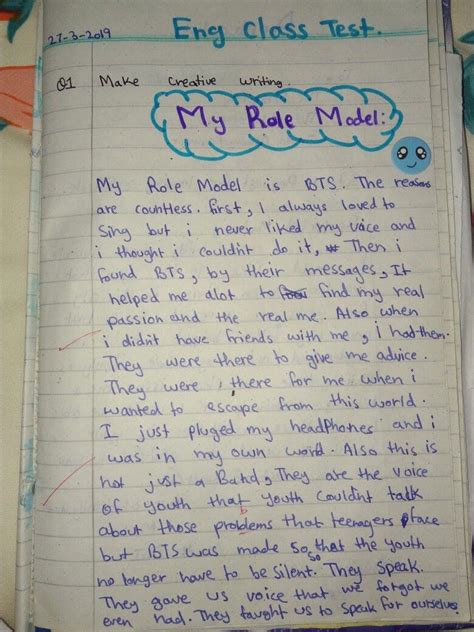 27-3-2019
Eng Class Test.
Q1 Make Creative writing.
My Role Model:
My Role Model is BTS. The reasons
are countless. first, I always loved to
Sing but i never liked my voice and
i thought i couldn't do it, Then i
found BTS, by their messages, It
helped me alot to find my real
passion and the real me. Also when
i didn't have friends with me, i had them.
They were there to give me advice.
They were, there for me when i
wanted to escape from this world.
I just pluged my headphones and i
was in my own word. Also this is
not just a Band, They are the voice
of youth that youth couldn't talk
about those problems that teenagers face
but BTS was made so that the youth
no longer have to be silent. They speak.
They gave us voice that we forgot we
even had. They taught us to speak for ourselves